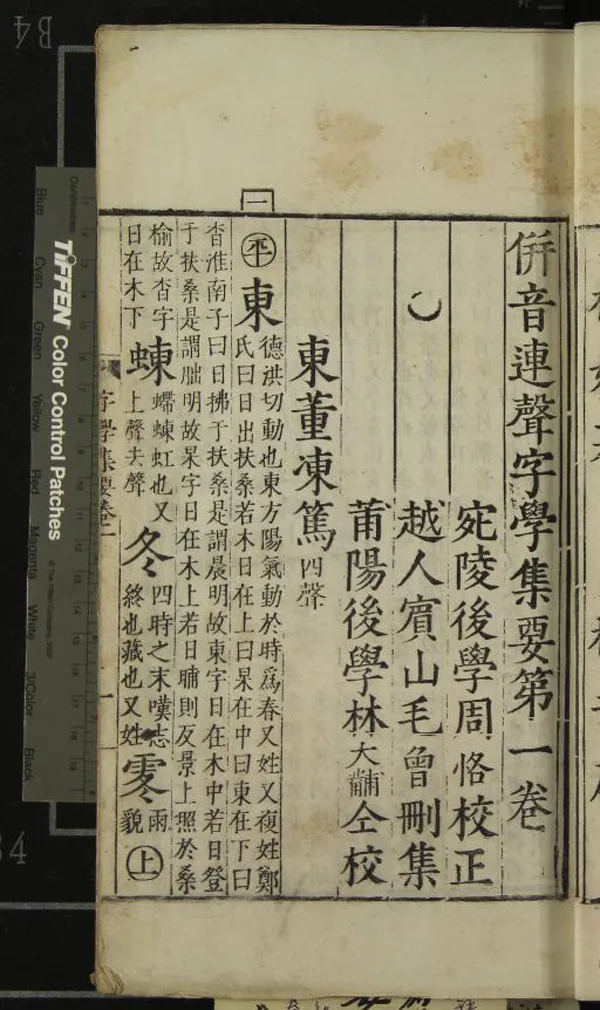 併音連聲字學集要第一卷
宛陵後學周恪校正
越人賓山毛曾刪集
莆陽後學林大黼仝校
東董凍篤四聲
一
平東德洪切動也東方陽氣動於時爲春又姓又複姓鄭
氏曰日出扶桑若木日在上曰杲在中曰東在下曰
杳淮南子曰日拂于扶桑是謂晨明故東字日在木中若日登
于扶桑是謂朏明故杲字日在木上若日晡則反景上照於桑
榆故杳字
日在木下
蝀螮蝀虹也又
上聲去聲
冬四時之末嘆志
終也藏也又姓
零雨
貌
上
字學集要卷一
一
B4
84
Centimetres
TIFFEN Color Control Patches
Blue
Cyan
Green
Yellow
Red
Magenta
White
3/Color
Black